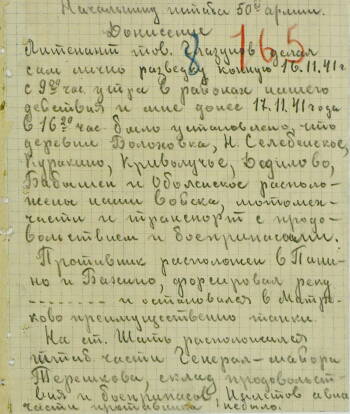 Начальнику штаба 50й армии.
Донесение
Литенант тов. Глазунов делал
сам лично разведку конную 16.11.41г
с 9 00 час утра в районах нашего
действия и мне донес 17.11.41 года
в 16 20 час было установлено, что
деревни Волоховка, Н. Селебенское,
Куракино, Криволучье, Дедилово,
и Оболенское располо-
жены наши вовска, мотомех-
части и транспорт с продо-
вольствием и боеприпасами.
Противник расположен в Пани-
но и Бакино, форсировал реку
-------- и остановался в
ково преимущественно танки.
На ст. Шать расположился
штаб. части Генерал-маиора
Терешкова, склад продовольст-
вия и боеприпасов, Налётов авиа
части противника небыло.
165
8